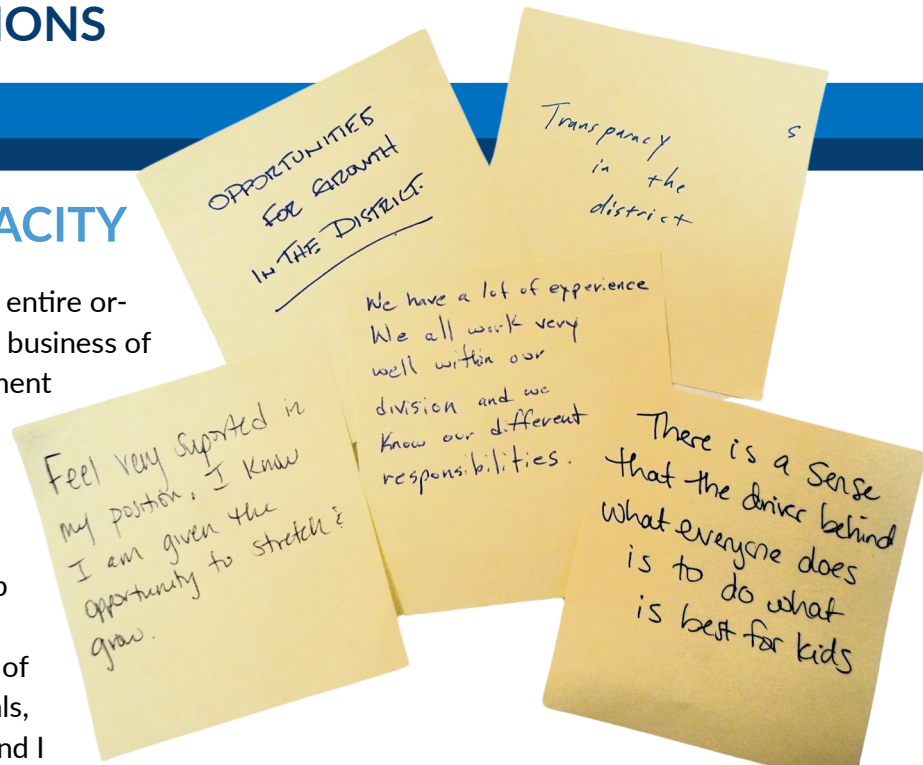 IONS
ACITY
entire or-
business of
ment
p
of
ls,
nd I
OPPORTUNITIES
FOR GROWTH
IN THE DISTRICT.
Transparacy
in the
district
s
We have a lot of experience
We all work very
well within our
division and we
know our different
responsibilities.
Feel very suported in
my position. I know
I am given the
opportunity to stretch &
grow.
There is a sense
that the driver behind
what everyone does
is to do what
is best for kids